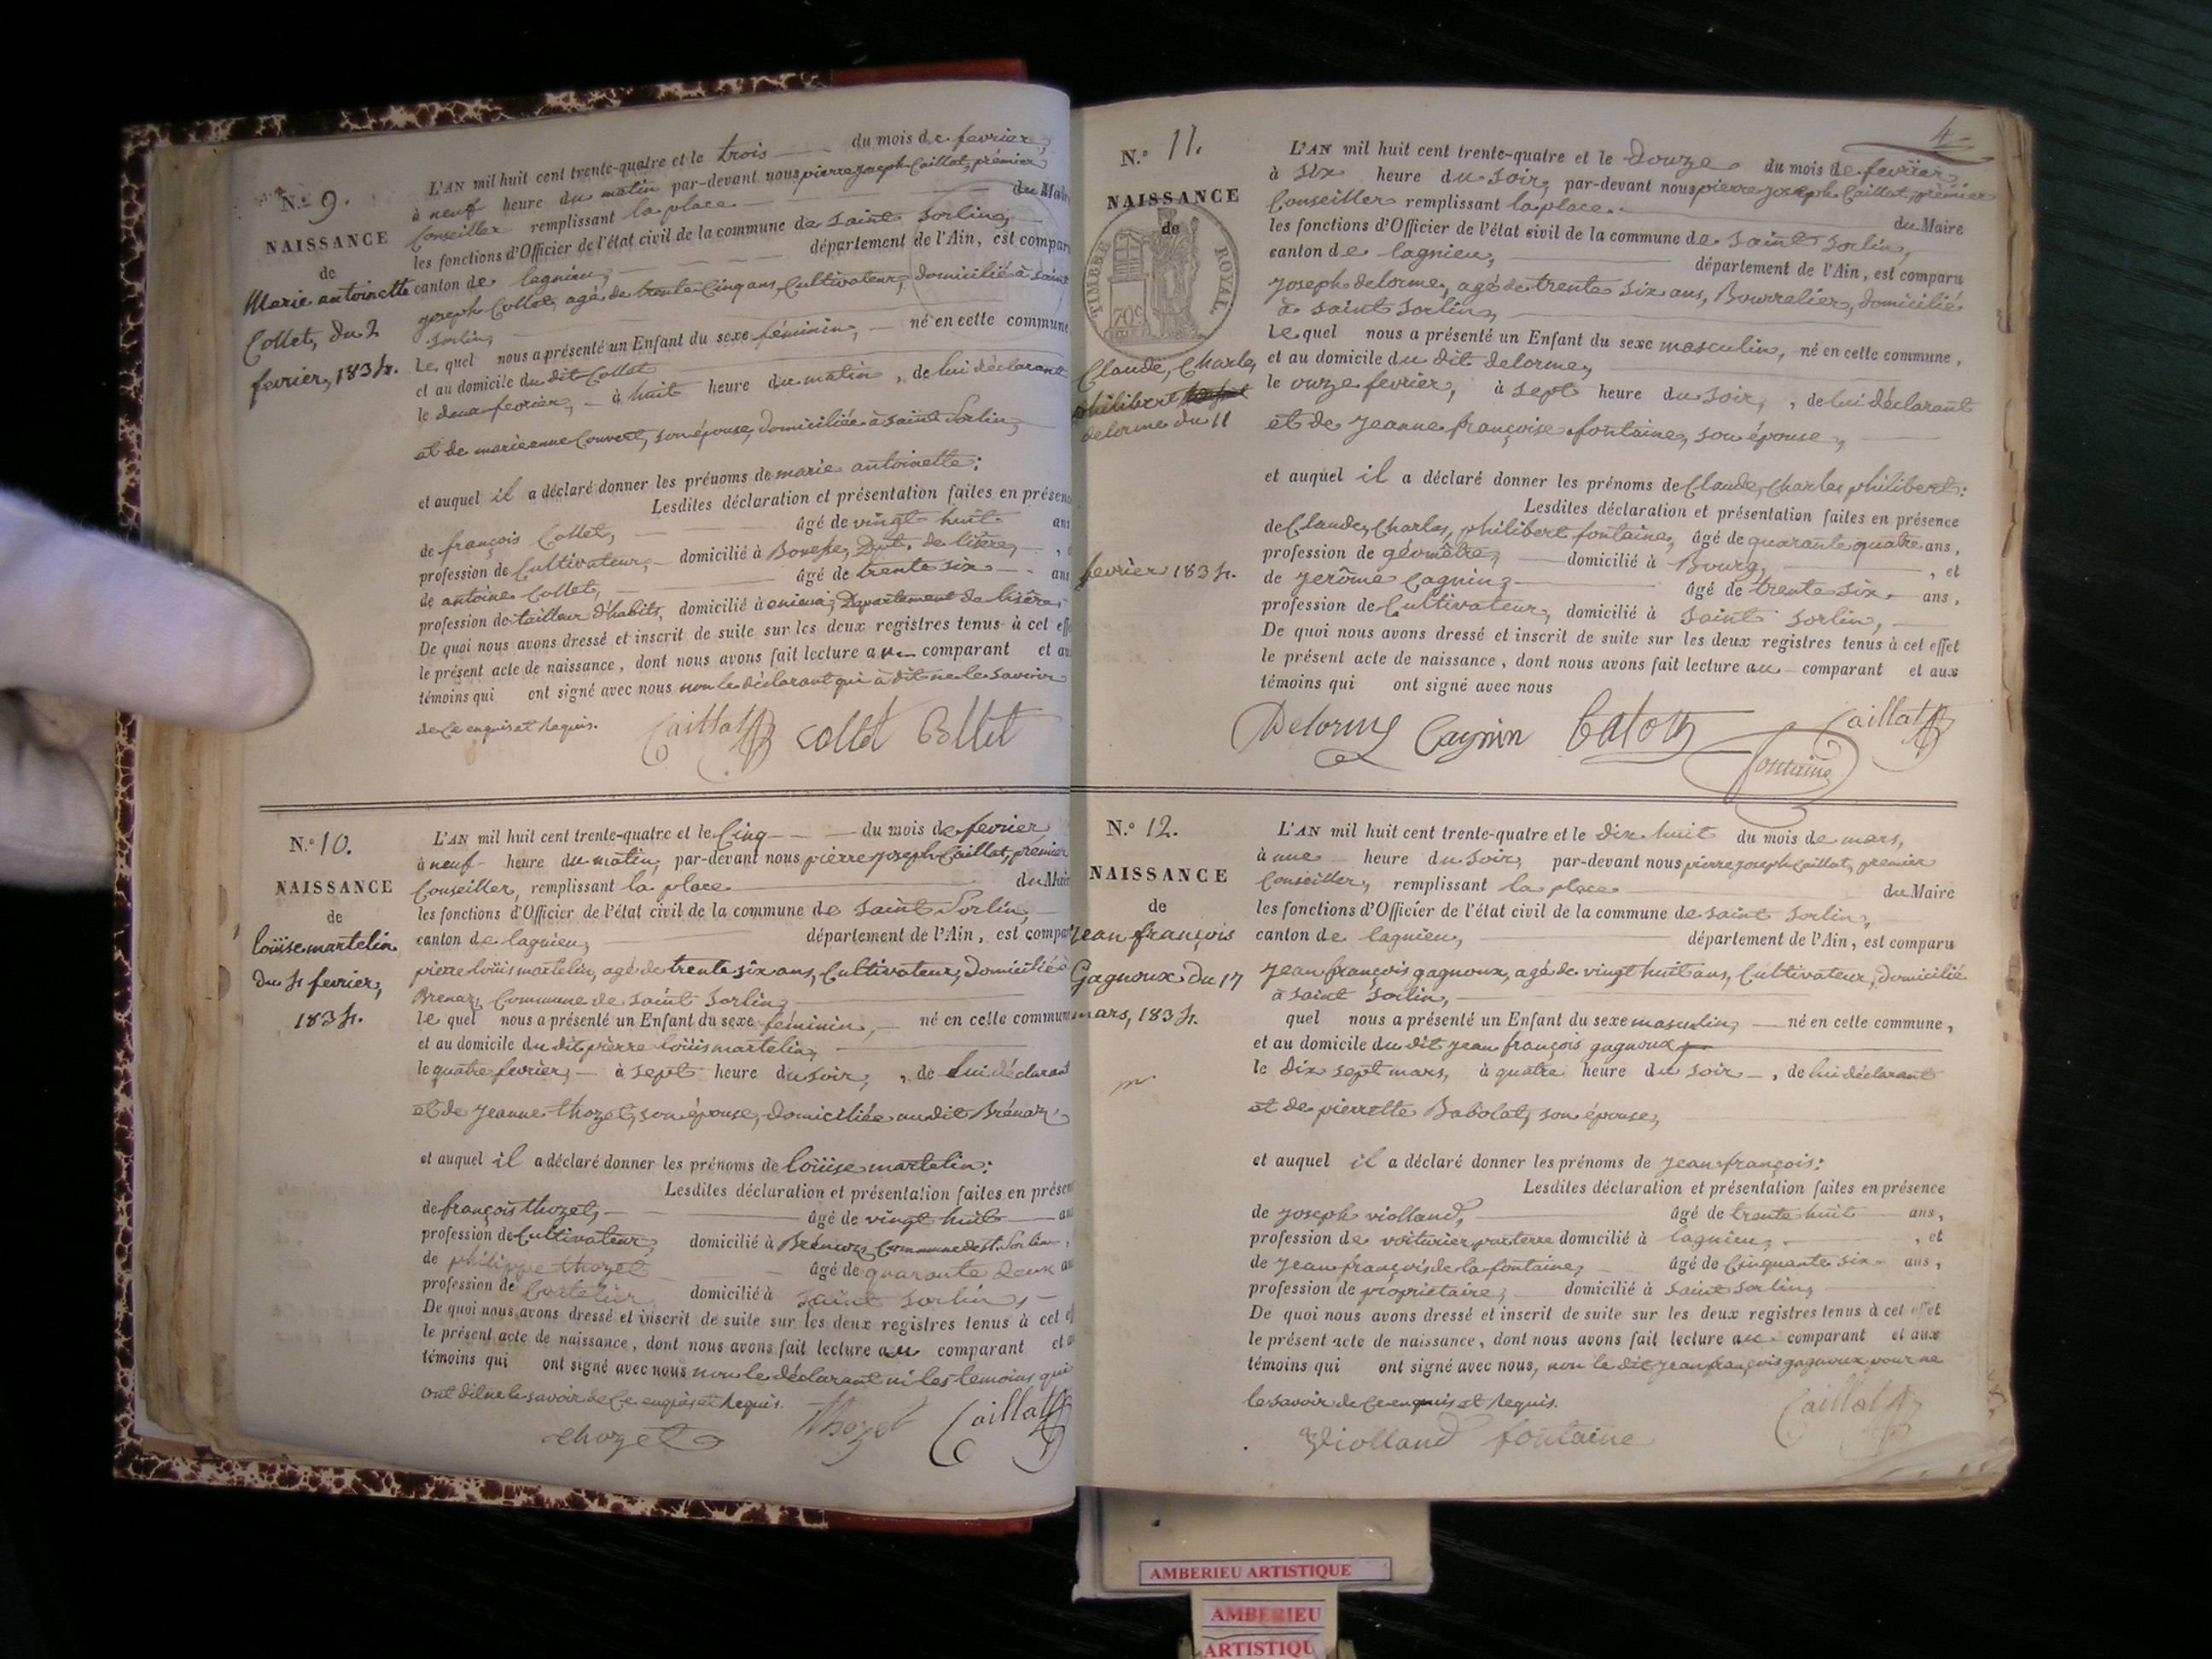 N.º 9.
NAISSANCE
de
Marie antoinette
Collet, du 2
fevrier, 1834.
L'AN mil huit cent trente-quatre et le trois du mois de fevrier,
à neuf heure du matin par-devant nous pierre joseph Caillat, premier
Conseiller remplissant la place du Mair
les fonctions d'Officier de l'état civil de la commune de saint Sorlin,
canton de lagnieu, département de l'Ain, est compar
joseph Collet, agé de trente Cinq ans, Cultivateur, domicilié à saint
Sorlin,
le quel nous a présenté un Enfant du sexe féminin, né en cette commune
et au domicile du dit Collet
le deux fevrier, à huit heure du matin, de lui déclarant
et de marie anne Couvert, son épouse, domiciliée à saint Sorlin,
et auquel il a déclaré donner les prénoms de marie antoinette:
Lesdites déclaration et présentation faites en présenc
de françois Collet, âgé de vingt huit ans
profession de Cultivateur, domicilié à Dpt. de lisère,
de antoine Collet, âgé de trente six ans
profession de tailleur d'habits, domicilié à Departement de lisère,
De quoi nous avons dressé et inscrit de suite sur les deux registres tenus à cet eff
le présent acte de naissance, dont nous avons fait lecture au comparant et au
témoins qui ont signé avec nous non le déclarant qui à dit ne le savoir
de Ce enquis et Requis.
Caillat Collet Collet
N.º 10.
NAISSANCE
de
loüise martelin
du 4 fevrier,
1834.
L'AN mil huit cent trente-quatre et le Cinq du mois de fevrier
à neuf heure du matin, par-devant nous pierre joseph Caillat, premier
Conseiller, remplissant la place du Mair
les fonctions d'Officier de l'état civil de la commune de saint Sorlin,
canton de lagnieu, département de l'Ain, est compar
pierre loüis martelin, agé de trente six ans, Cultivateur, Domicilié à
Brenaz, Commune de saint Sorlin,
le quel nous a présenté un Enfant du sexe féminin, né en cette commune
et au domicile du dit pierre loüis martelin,
le quatre fevrier, à sept heure du soir, de lui déclarant
et de jeanne thozet, son épouse, domiciliée audit Brénaz,
et auquel il a déclaré donner les prénoms de loüise martelin:
Lesdites déclaration et présentation faites en présen
de françois thozet, âgé de vingt huit an
profession de Cultivateur, domicilié à Brénaz, Commune de St. Sorlin,
de philippe thozet âgé de quarante deux an
profession de domicilié à saint Sorlin,
De quoi nous avons dressé et inscrit de suite sur les deux registres tenus à cet ef
le présent acte de naissance, dont nous avons fait lecture au comparant et a
témoins qui ont signé avec nous non le déclarant ni les temoins qui
ont dit ne le savoir de Ce enquis et Requis.
thozet Thozet Caillat
4
N.º 11.
NAISSANCE
de
TIMBRE ROYAL
70c
Claude, Charles,
philibert
delorme du 11
fevrier 1834.
L'AN mil huit cent trente-quatre et le Douze du mois de fevrier
à six heure du soir, par-devant nous pierre joseph Caillat, premier
Conseiller remplissant la place du Maire
les fonctions d'Officier de l'état civil de la commune de saint Sorlin,
canton de lagnieu, département de l'Ain, est comparu
joseph delorme, agé de trente six ans, Bourrelier, domicilié
à saint Sorlin,
le quel nous a présenté un Enfant du sexe masculin, né en cette commune,
et au domicile du dit delorme,
le onze fevrier, à sept heure du soir, de lui déclarant
et de jeanne françoise fontaine, son épouse,
et auquel il a déclaré donner les prénoms de Claude, Charles, philibert:
Lesdites déclaration et présentation faites en présence
de Claude, Charles, philibert fontaine, âgé de quarante quatre ans,
profession de géomètre, domicilié à Bourg, et
de jerôme Cagnin, âgé de trente six ans,
profession de Cultivateur, domicilié à saint Sorlin,
De quoi nous avons dressé et inscrit de suite sur les deux registres tenus à cet effet
le présent acte de naissance, dont nous avons fait lecture au comparant et aux
témoins qui ont signé avec nous
Delorme Cagnin Caillat
fontaine
N.º 12.
NAISSANCE
de
jean françois
Gagnoux du 17
mars, 1834.
L'AN mil huit cent trente-quatre et le Dix huit du mois de mars,
à une heure du soir, par-devant nous pierre joseph Caillat, premier
Conseiller, remplissant la place du Maire
les fonctions d'Officier de l'état civil de la commune de saint Sorlin,
canton de lagnieu, département de l'Ain, est comparu
jean françois gagnoux, agé de vingt huit ans, Cultivateur, Domicilié
à saint Sorlin,
quel nous a présenté un Enfant du sexe masculin, né en cette commune,
et au domicile du dit jean françois gagnoux
le Dix sept mars, à quatre heure du soir, de lui déclarant
et de pierrette Babolat, son épouse,
et auquel il a déclaré donner les prénoms de jean françois:
Lesdites déclaration et présentation faites en présence
de joseph violland, âgé de trente huit ans,
profession de voiturier par terre domicilié à lagnieu, et
de jean françois de la fontaine, âgé de Cinquante six ans,
profession de propriétaire, domicilié à saint Sorlin,
De quoi nous avons dressé et inscrit de suite sur les deux registres tenus à cet effet
le présent acte de naissance, dont nous avons fait lecture au comparant et aux
témoins qui ont signé avec nous, non le dit jean françois gagnoux pour ne
le savoir de Ce enquis et Requis.
Violland fontaine Caillat
AMBERIEU ARTISTIQUE
AMBERIEU
ARTISTIQU